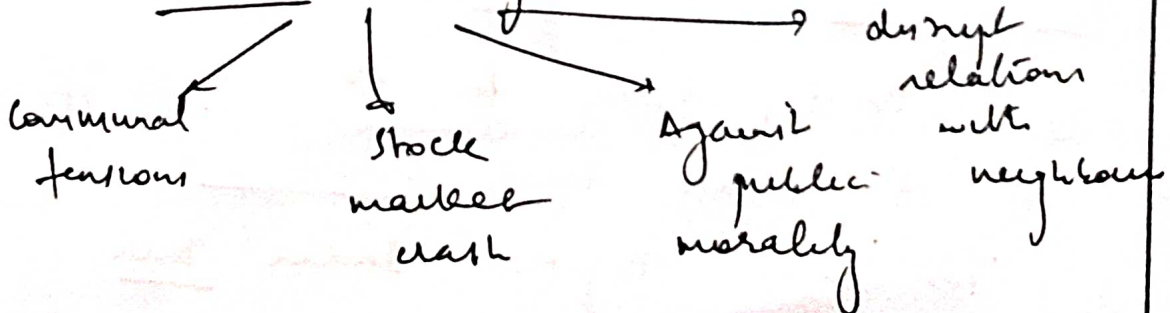 Communal
tensions
Stock
market
crash
Against
public
morality.
disrupt
relations
with
neighbours